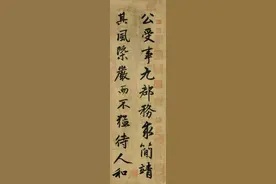 公受事九郡務簡
其風槩嚴而不猛待人和